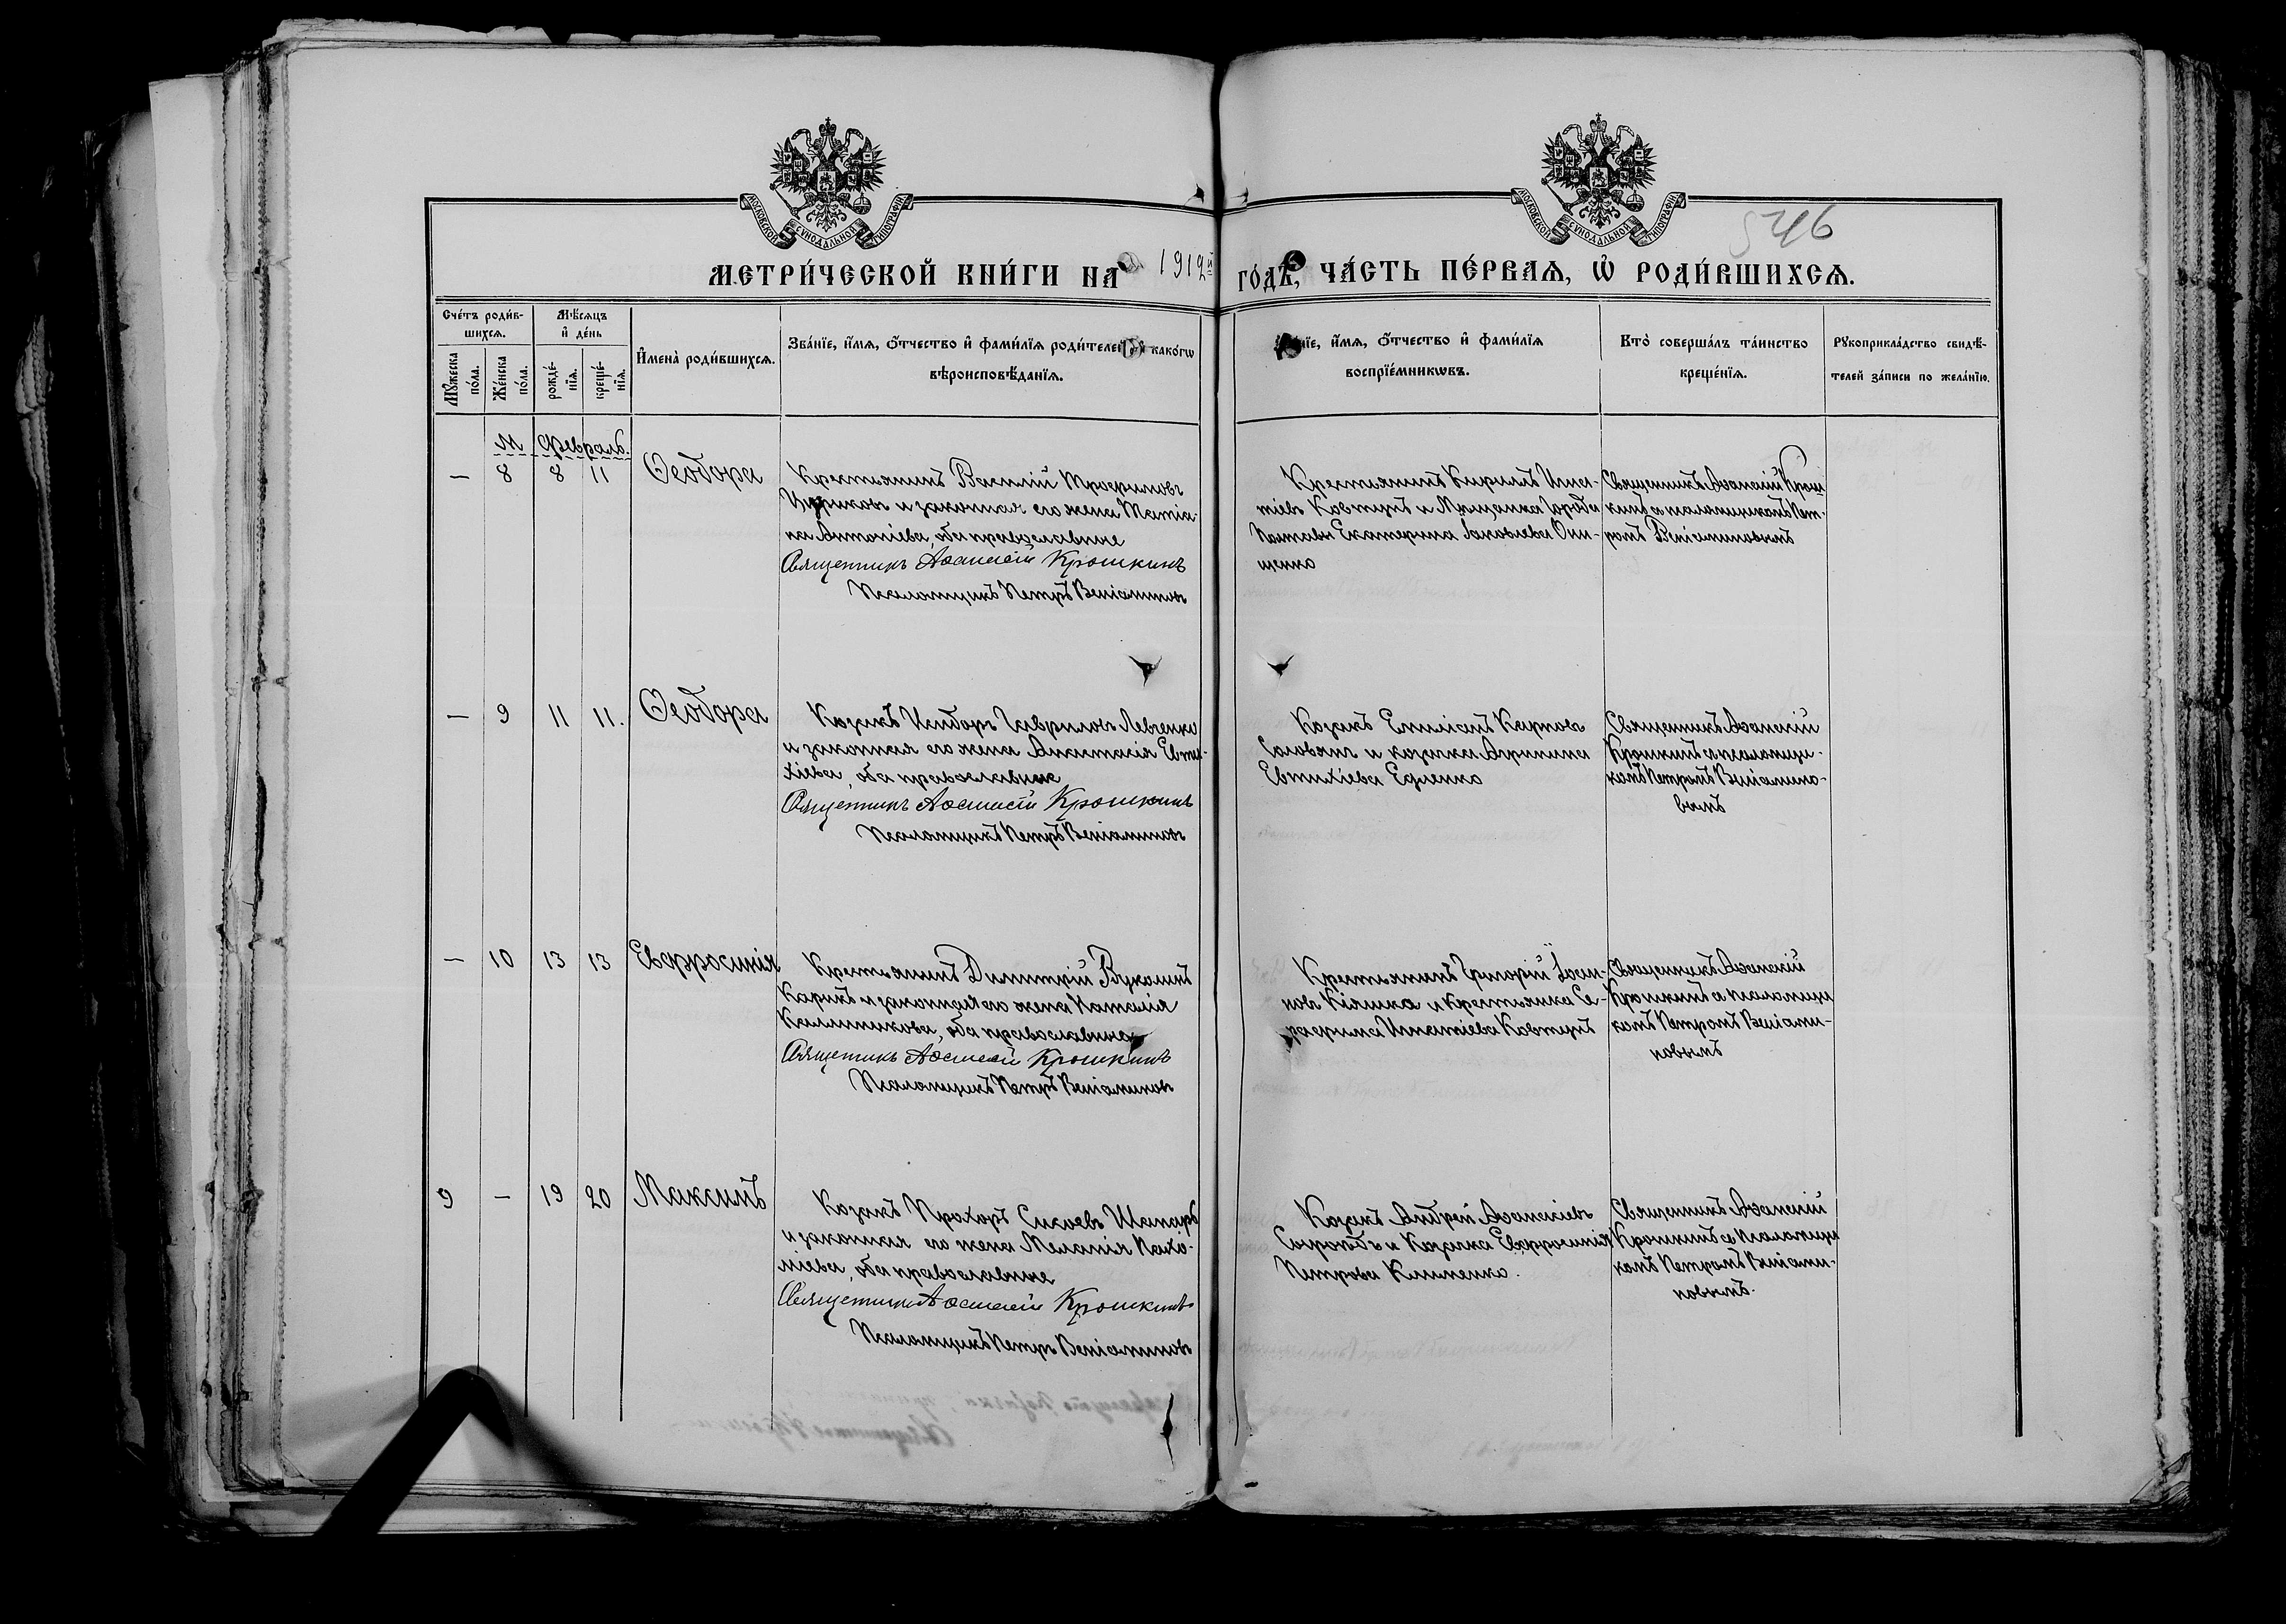 МОСКОВСКОЙ СѴНОДАЛЬНОЙ ТИПОГРАФІИ
МОСКОВСКОЙ СѴНОДАЛЬНОЙ ТИПОГРАФІИ
546
МЕТРИ́ЧЕСКОЙ КНИ́ГИ НА 1912й ГО́ДЪ, ЧА́СТЬ ПЕ́РВАѦ, Ѡ҆ РОДИ́ВШИХСѦ.
Сче́тъ роди́в-
шихсѧ.
Мꙋ́жеска
по́ла.
Же́нска
по́ла.
Мѣ́сѧцъ
и҆ де́нь
рожде́-
нїѧ.
креще́-
нїѧ.
И҆мена̀ роди́вшихсѧ.
Зва́нїе, и҆́мѧ, ѻ҆́тчество и҆ фами́лїѧ роди́телей, и҆ како́гѡ
вѣроисповѣ́данїѧ.
и҆́мѧ, ѻ҆́тчество и҆ фами́лїѧ
воспрїе́мникѡвъ.
Кто̀ соверша́лъ та́инство
креще́нїѧ.
Рꙋкоприкла́дство свидѣ́-
телей за́писи по жела́нїю.
М. Февраль.
— 8 8 11 Ѳеодора
Крестьянинъ Василій Трофимовъ
и законная его жена Татіа-
на Антоніева, оба православные
Священникъ Аѳанасій Крошкинъ
Псаломщикъ Петръ Веніаминовъ
Крестьянинъ Кириллъ Игна-
тіевъ Ковтунъ и Мѣщанка города
Полтавы Екатерина Іаковлева Они-
щенко
Священникъ Аѳанасій Крош
кинъ съ псаломщикомъ Пет-
ромъ Веніаминовымъ
— 9 11 11. Ѳеодора
Козакъ Исидоръ Гавриловъ Левченко
и законная его жена Анастасія Евти-
хіева, оба православные
Священникъ Аѳанасій Крошкинъ
Псаломщикъ Петръ Веніаминовъ
Козакъ Емиліанъ Карповъ
и козачка Агриппина
Евтихіева
Священникъ Аѳанасій
Крошкинъ съ псаломщи-
комъ Петромъ Веніамино-
вымъ
— 10 13 13 Евфросинія
Крестьянинъ Димитрій
и законная его жена Наталія
Каллиникова, оба православные
Священникъ Аѳанасій Крошкинъ
Псаломщикъ Петръ Веніаминовъ
Крестьянинъ Григорій Іоан-
новъ Кіяшко и Крестьянка Се-
рафима Игнатіева Ковтунъ
Священникъ Аѳанасій
Крошкинъ съ псаломщи
комъ Петромъ Веніами-
новымъ
9 — 19 20 Максимъ
Козакъ Прохоръ Сисоевъ Шапарь
и законная его жена Меланія Пахо-
міева, оба православные
Священникъ Аѳанасій Крошкинъ
Псаломщикъ Петръ Веніаминовъ
Козакъ Андрей Аѳанасіевъ
и Козачка Евфросинія
Петрова Клименко.
Священникъ Аѳанасій
Крошкинъ съ псаломщи
комъ Петромъ Веніами-
новымъ.